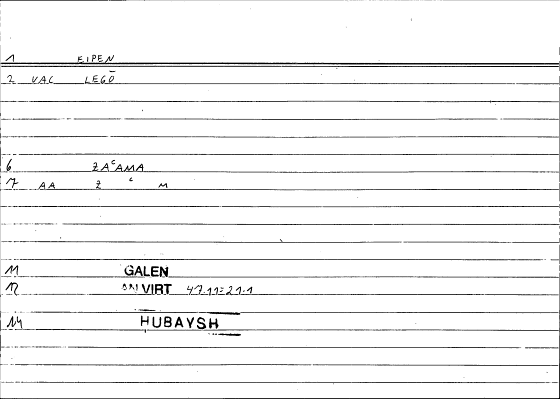 1 EIPEN
2 VAC LEGŌ
6 ZAᶜAMA
7 AA Z ᶜ M
11 GALEN
12 VIRT 47.11=21.1
14 HUBAYSH